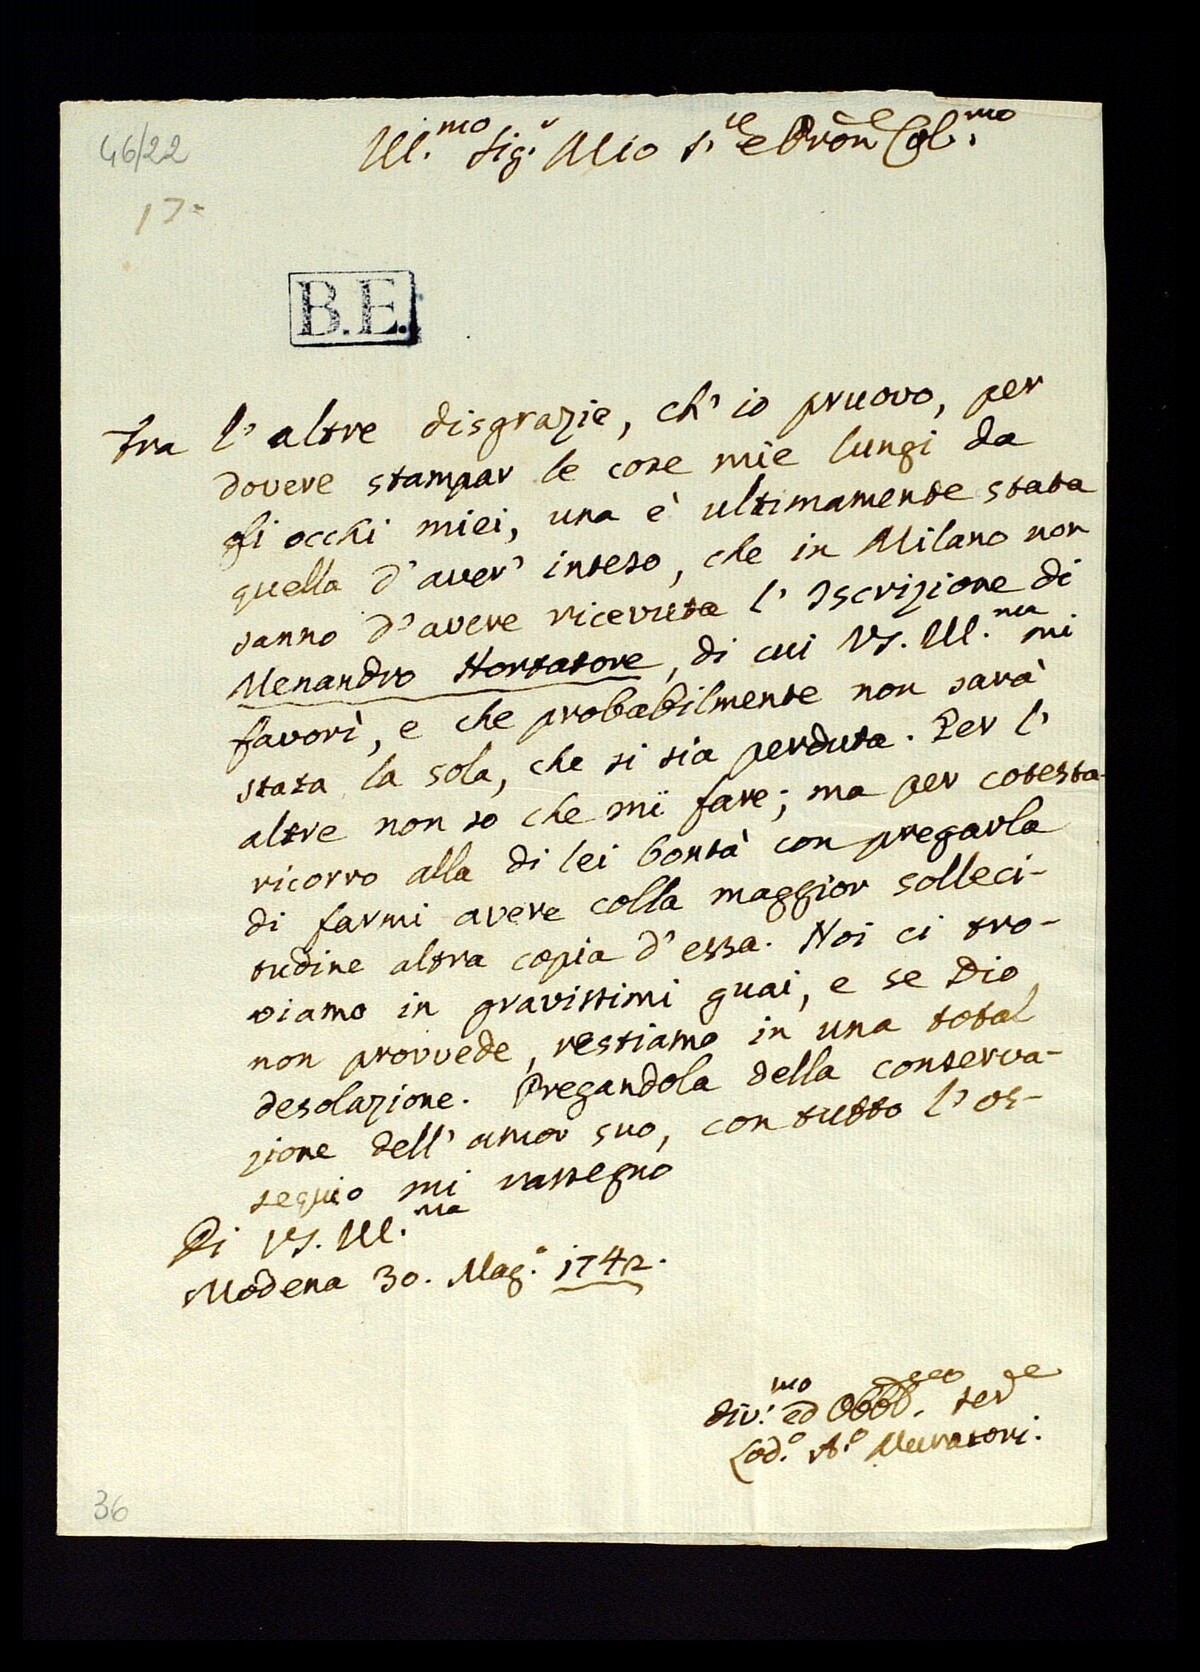 46/22
17=
Ill.mo Sig.r Mio S.re e Pron Col.mo
B.E.
Fra l'altre disgrazie, ch'io pruovo, per
dovere stampar le cose mie lungi da
gli occhi miei, una è ultimamente stata
quella d'aver' inteso, che in Milano non
sanno d'avere ricevuta l'Iscrizione di
Menandro Hortatore, di cui VS. Ill.ma mi
favorì, e che probabilmente non sarà
stata la sola, che si sia perduta. Per l'
altre non so che mi fare; ma per cotesta
ricorro alla di lei bontà con pregarla
di farmi avere colla maggior solleci-
tudine altra copia d'essa. Noi ci tro-
viamo in gravissimi guai, e se Dio
non provvede, restiamo in una total
desolazione. Pregandola della conserva-
zione dell'amor suo, con tutto l'os-
sequio mi rassegno
Di VS. Ill.ma
Modena 30. Mag.o 1742.
Div.mo ed Obbl. ser.e
Lod.o A.o Muratori.
36